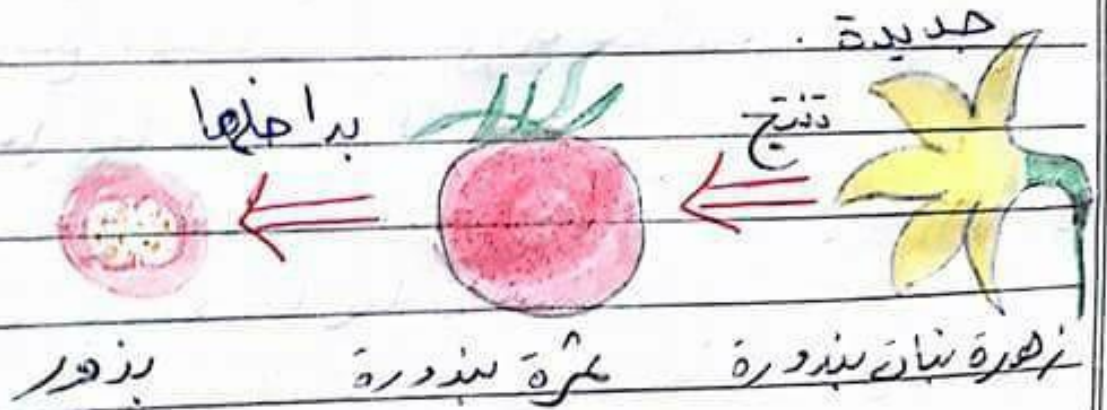 جديدة .
تنتج
بداخلها
زهرة نبات بندورة
ثمرة بندورة
بذور